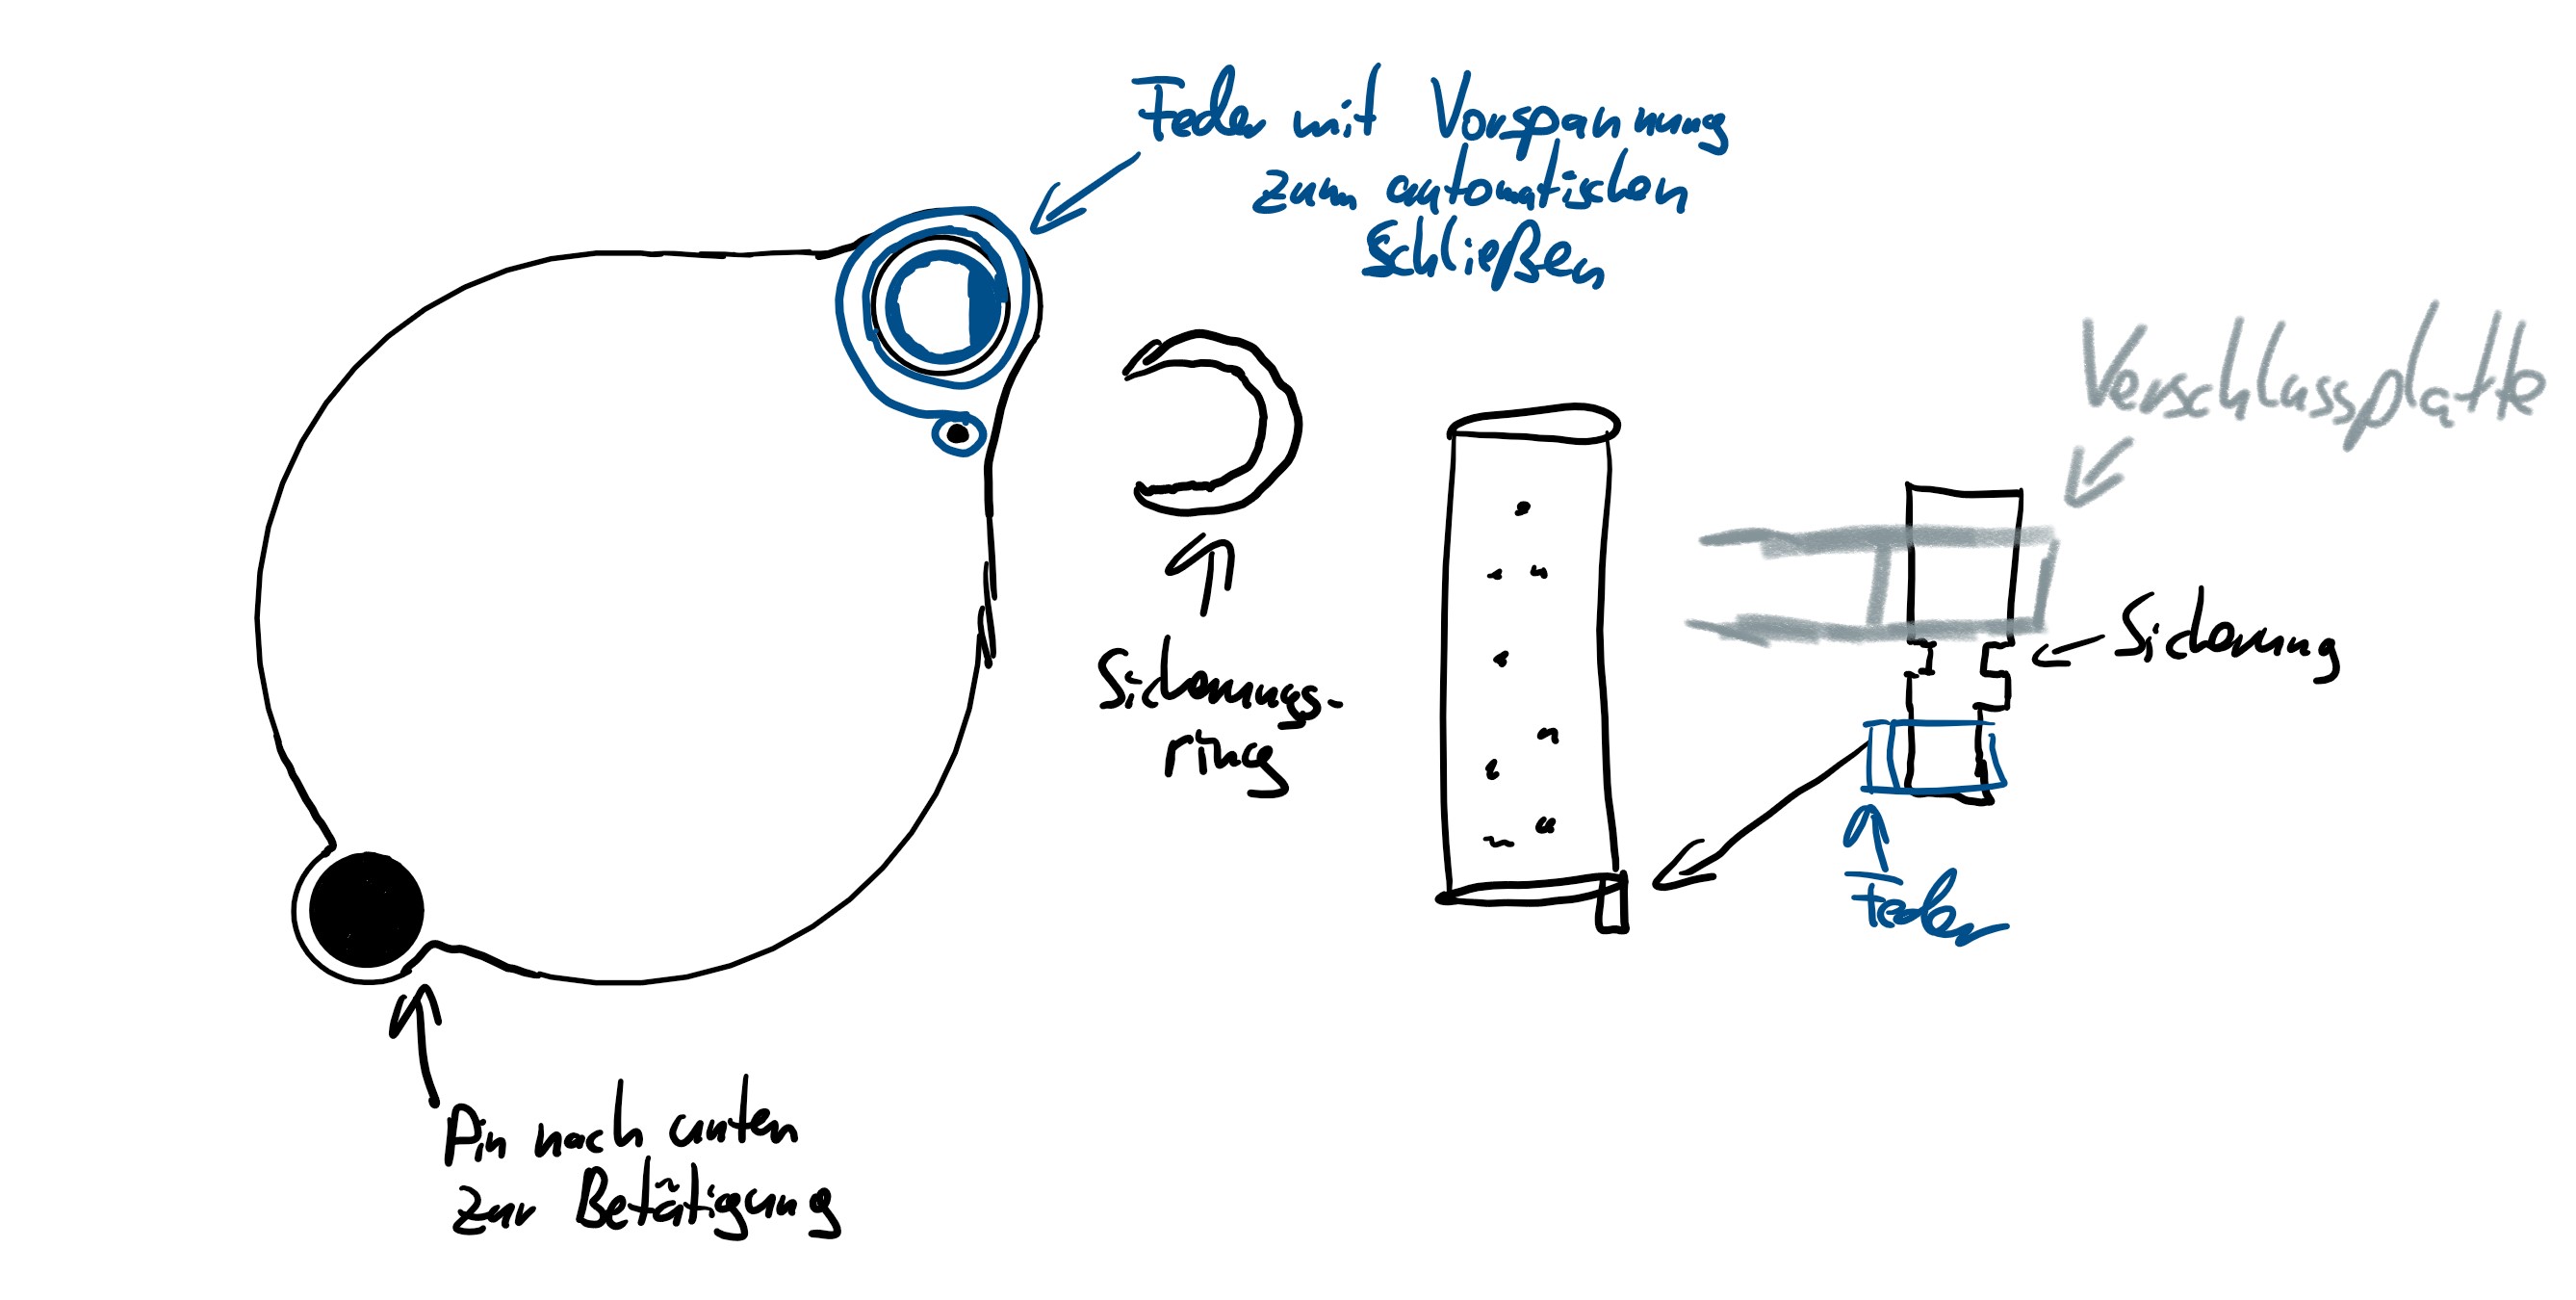 Feder mit Vorspannung
zum automatischen
Schließen
Verschlussplatte
Sicherungs-
ring
Sicherung
Feder
Pin nach unten
zur Betätigung